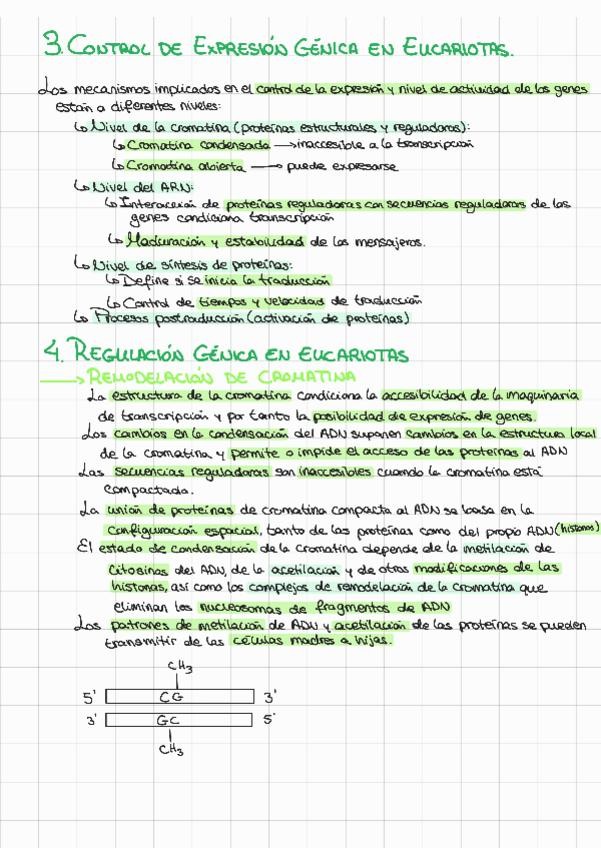 3. CONTROL DE EXPRESIÓN GÉNICA EN EUCARIOTAS.
Los mecanismos implicados en el control de la expresión y nivel de actividad de los genes
están a diferentes niveles:
↳ Nivel de la cromatina (proteínas estructurales y reguladoras):
↳ Cromatina condensada → inaccesible a la transcripción
↳ Cromatina abierta → puede expresarse
↳ Nivel del ARN:
↳ Interacción de proteínas reguladoras con secuencias reguladoras de los
genes condiciona transcripción
↳ Maduración y estabilidad de los mensajeros.
↳ Nivel de síntesis de proteínas:
↳ Define si se inicia la traducción
↳ Control de tiempos y velocidad de traducción
↳ Procesos postraducción (activación de proteínas)
4. REGULACIÓN GÉNICA EN EUCARIOTAS
→ REMODELACIÓN DE CROMATINA
La estructura de la cromatina condiciona la accesibilidad de la maquinaria
de transcripción y por tanto la posibilidad de expresión de genes.
Los cambios en la condensación del ADN suponen cambios en la estructura local
de la cromatina y permite o impide el acceso de las proteínas al ADN
Las secuencias reguladoras son inaccesibles cuando la cromatina está
compactada.
La unión de proteínas de cromatina compacta al ADN se basa en la
configuración espacial, tanto de las proteínas como del propio ADN (histonas)
El estado de condensación de la cromatina depende de la metilación de
citosinas del ADN, de la acetilación y de otras modificaciones de las
histonas, así como los complejos de remodelación de la cromatina que
eliminan los nucleosomas de fragmentos de ADN
Los patrones de metilación de ADN y acetilación de las proteínas se pueden
transmitir de las células madres a hijas.
CH3
5' CG 3'
3' GC 5'
CH3